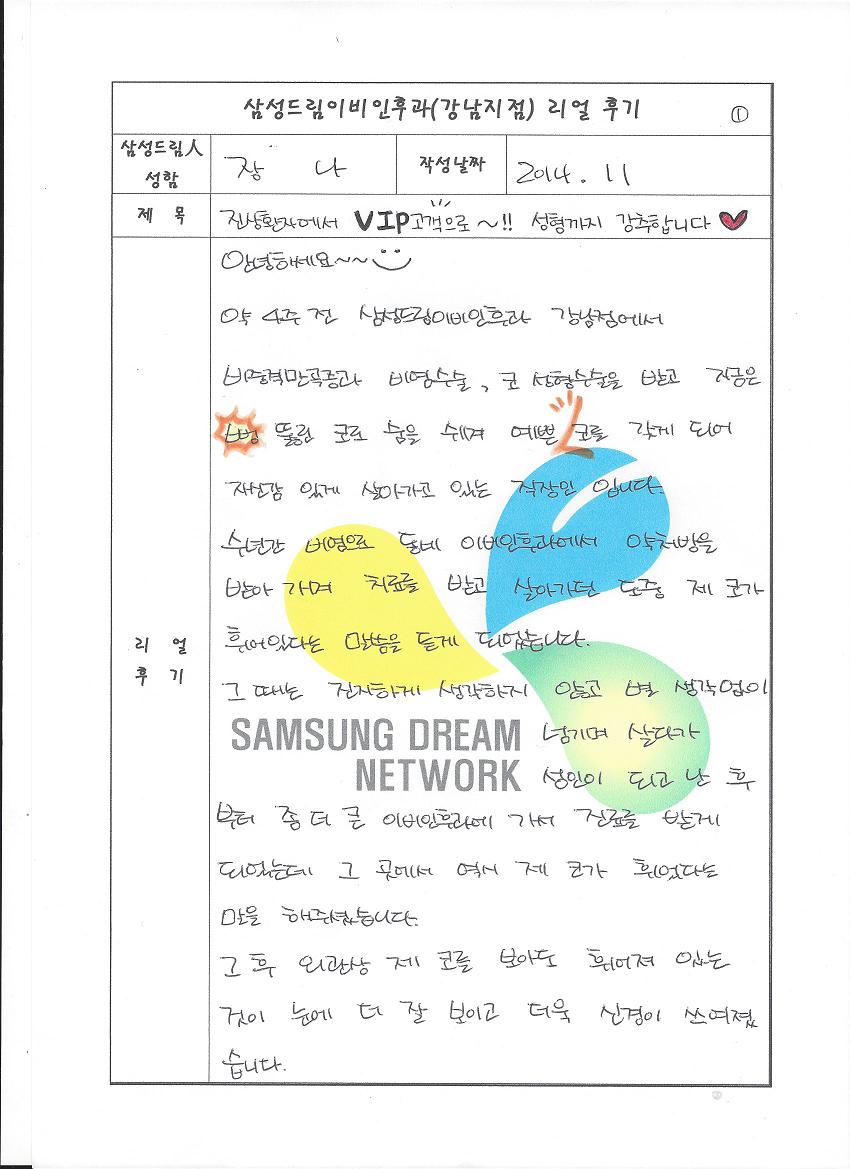 삼성드림이비인후과(강남지점) 리얼 후기 ①
삼성드림人 성함
장 나
작성날짜
2014. 11
제 목
진상환자에서 VIP고객으로~!! 성형까지 강추합니다♥
리 얼
후 기
안녕하세요~~
약 4주 전 삼성드림이비인후과 강남점에서
비중격만곡증과 비염수술, 코 성형수술을 받고 지금은
뻥 뚫린 코로 숨을 쉬며 예쁜 코를 갖게 되어
자신감 있게 살아가고 있는 직장인 입니다.
수년간 비염으로 동네 이비인후과에서 약처방을
받아 가며 치료를 받고 살아가던 도중 제 코가
휘어있다는 말씀을 듣게 되었습니다.
그 때는 진지하게 생각하지 않고 별 생각없이
넘기며 살다가
SAMSUNG DREAM
NETWORK
성인이 되고 난 후
부터 좀 더 큰 이비인후과에 가서 진료를 받게
되었는데 그 곳에서 역시 제 코가 휘었다는
말을 해주셨습니다.
그 후 외관상 제 코를 보아도 휘어져 있는
것이 눈에 더 잘 보이고 더욱 신경이 쓰여졌
습니다.